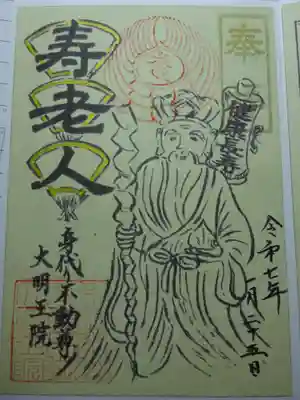 奉
健康長寿
寿老人
身代不動尊
大明王院
令和七年
一月二十五日